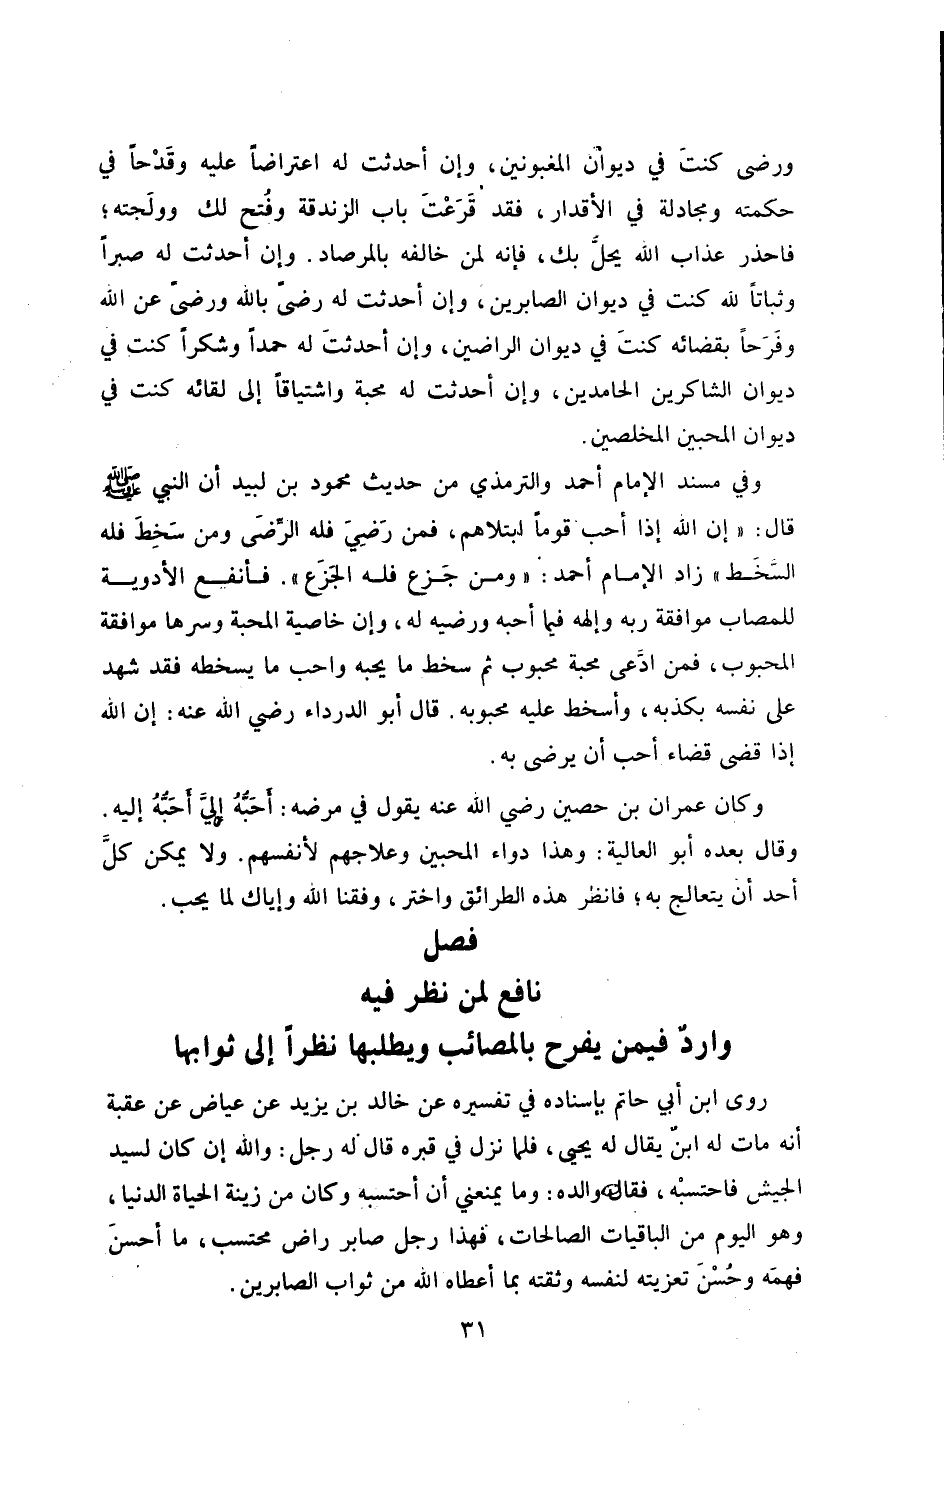 ورضى كنتَ في ديوان المغبونين، وإن أحدثت له اعتراضاً عليه وقَدْحاً في
حكمته ومجادلة في الأقدار، فقد قَرَعْتَ باب الزندقة وفُتح لك وولَجته؛
فاحذر عذاب الله يحلَّ بك، فإنه لمن خالفه بالمرصاد. وإن أحدثت له صبراً
وثباتاً لله كنت في ديوان الصابرين، وإن أحدثت له رضىً بالله ورضىً عن الله
وفَرَحاً بقضائه كنتَ في ديوان الراضين، وإن أحدثتَ له حمداً وشكراً كنت في
ديوان الشاكرين الحامدين، وإن أحدثت له محبة واشتياقاً إلى لقائه كنت في
ديوان المحبين المخلصين.
وفي مسند الإمام أحمد والترمذي من حديث محمود بن لبيد أن النبي ﷺ
قال: « إن الله إذا أحب قوماً ابتلاهم، فمن رَضِيَ فله الرِّضَى ومن سَخِطَ فله
السَّخَط» زاد الإمام أحمد: « ومن جَزع فله الجَزَع ». فأنفع الأدوية
للمصاب موافقة ربه وإلهه فيما أحبه ورضيه له، وإن خاصية المحبة وسرها موافقة
المحبوب، فمن ادَّعى محبة محبوب ثم سخط ما يحبه واحب ما يسخطه فقد شهد
على نفسه بكذبه، وأسخط عليه محبوبه. قال أبو الدرداء رضي الله عنه: إن الله
إذا قضى قضاء أحب أن يرضى به.
وكان عمران بن حصين رضي الله عنه يقول في مرضه: أَحَبُّهُ إِليَّ أَحَبُّهُ إليه.
وقال بعده أبو العالية: وهذا دواء المحبين وعلاجهم لأنفسهم. ولا يمكن كلَّ
أحد أن يتعالج به؛ فانظر هذه الطرائق واختر، وفقنا الله وإياك لما يحب.
فصل
نافع لمن نظر فيه
واردّ فيمن يفرح بالمصائب ويطلبها نظراً إلى ثوابها
روى ابن أبي حاتم بإسناده في تفسيره عن خالد بن يزيد عن عياض عن عقبة
أنه مات له ابنٌ يقال له يحيى، فلما نزل في قبره قال له رجل: والله إن كان لسيد
الجيش فاحتسبْه، فقال والده: وما يمنعني أن أحتسبه وكان من زينة الحياة الدنيا،
وهو اليوم من الباقيات الصالحات، فهذا رجل صابر راض محتسب، ما أحسنَ
فهمَه وحُسْنَ تعزيته لنفسه وثقته بما أعطاه الله من ثواب الصابرين.
٣١